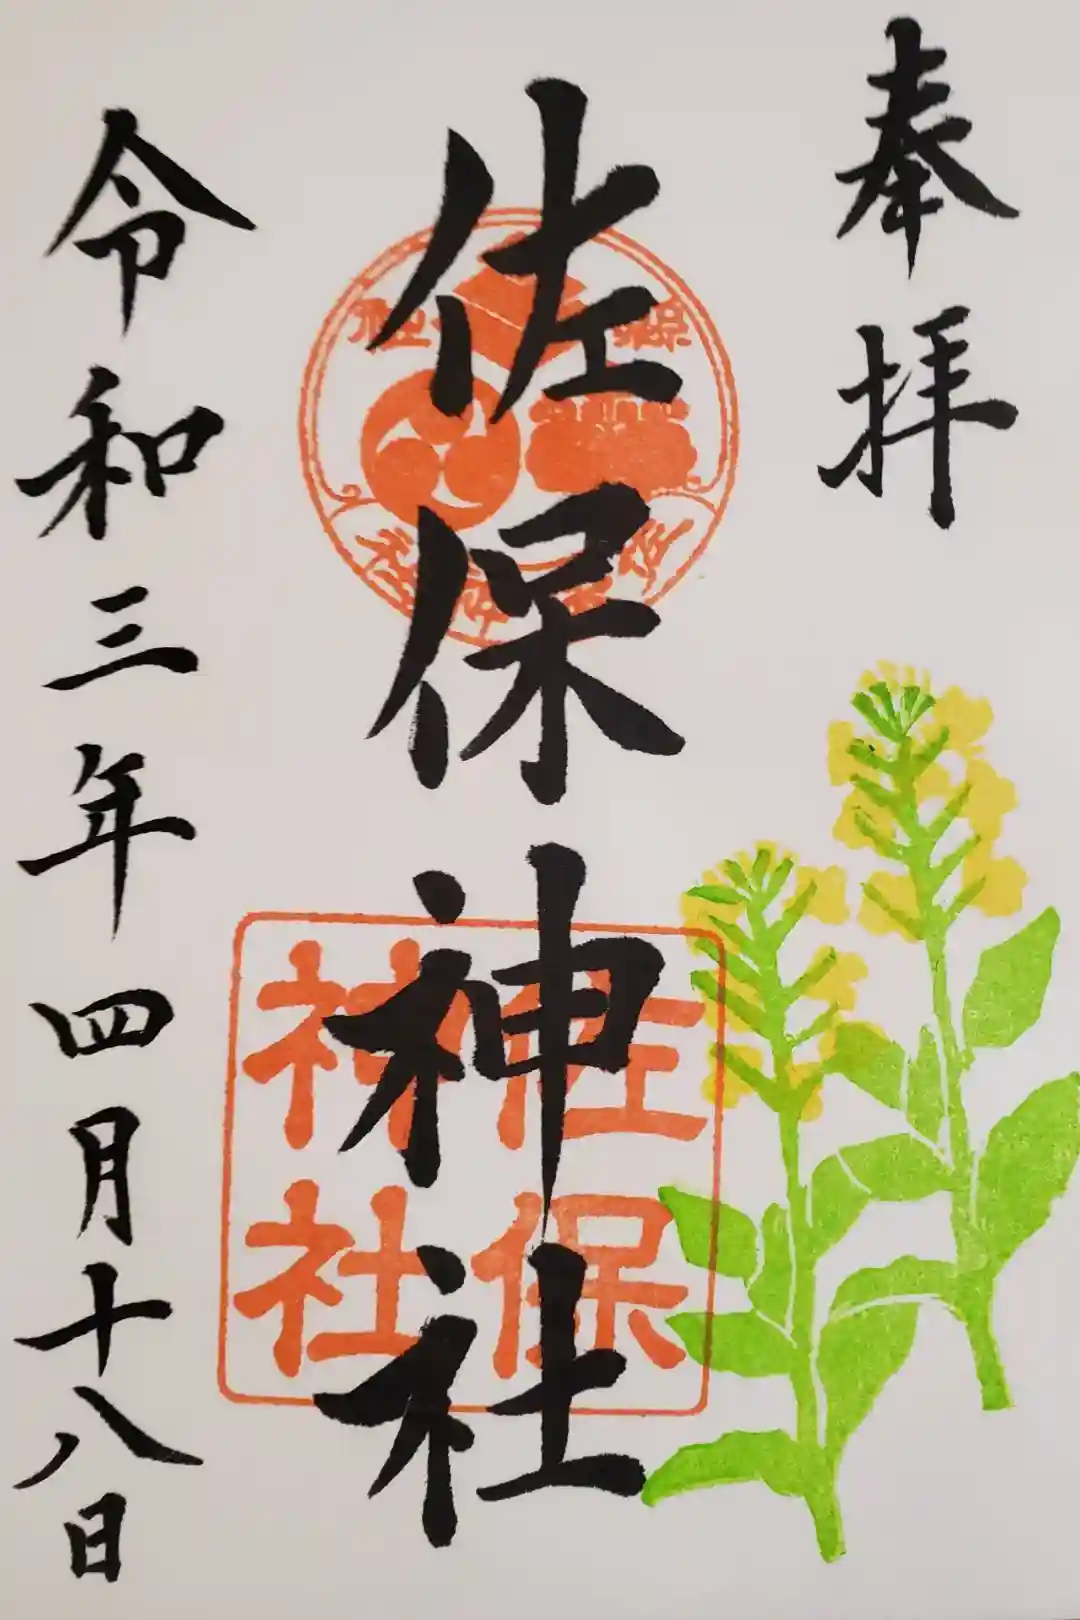 奉拝
佐保神社
令和三年四月十八日
佐保
神社